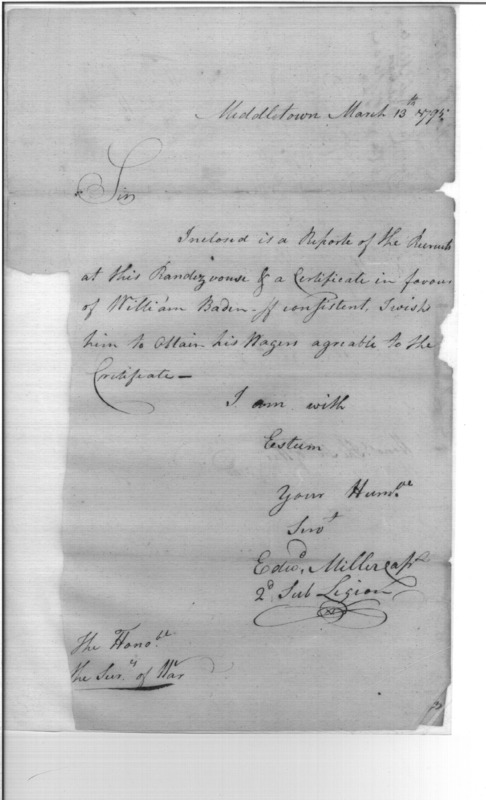 Middletown March 13th 1795
Sir
Inclosed is a Reporte of the Recruits
at this Randezvouse & a Certificate in favour
of William Baden. If consistent, I wish
him to Obtain his Wages agreable to the
Certificate —
I am with
Esteem
Your Humble
Servt
Edwd. Miller Capt
2d Sub Legion
The Honoble
the Secy of War